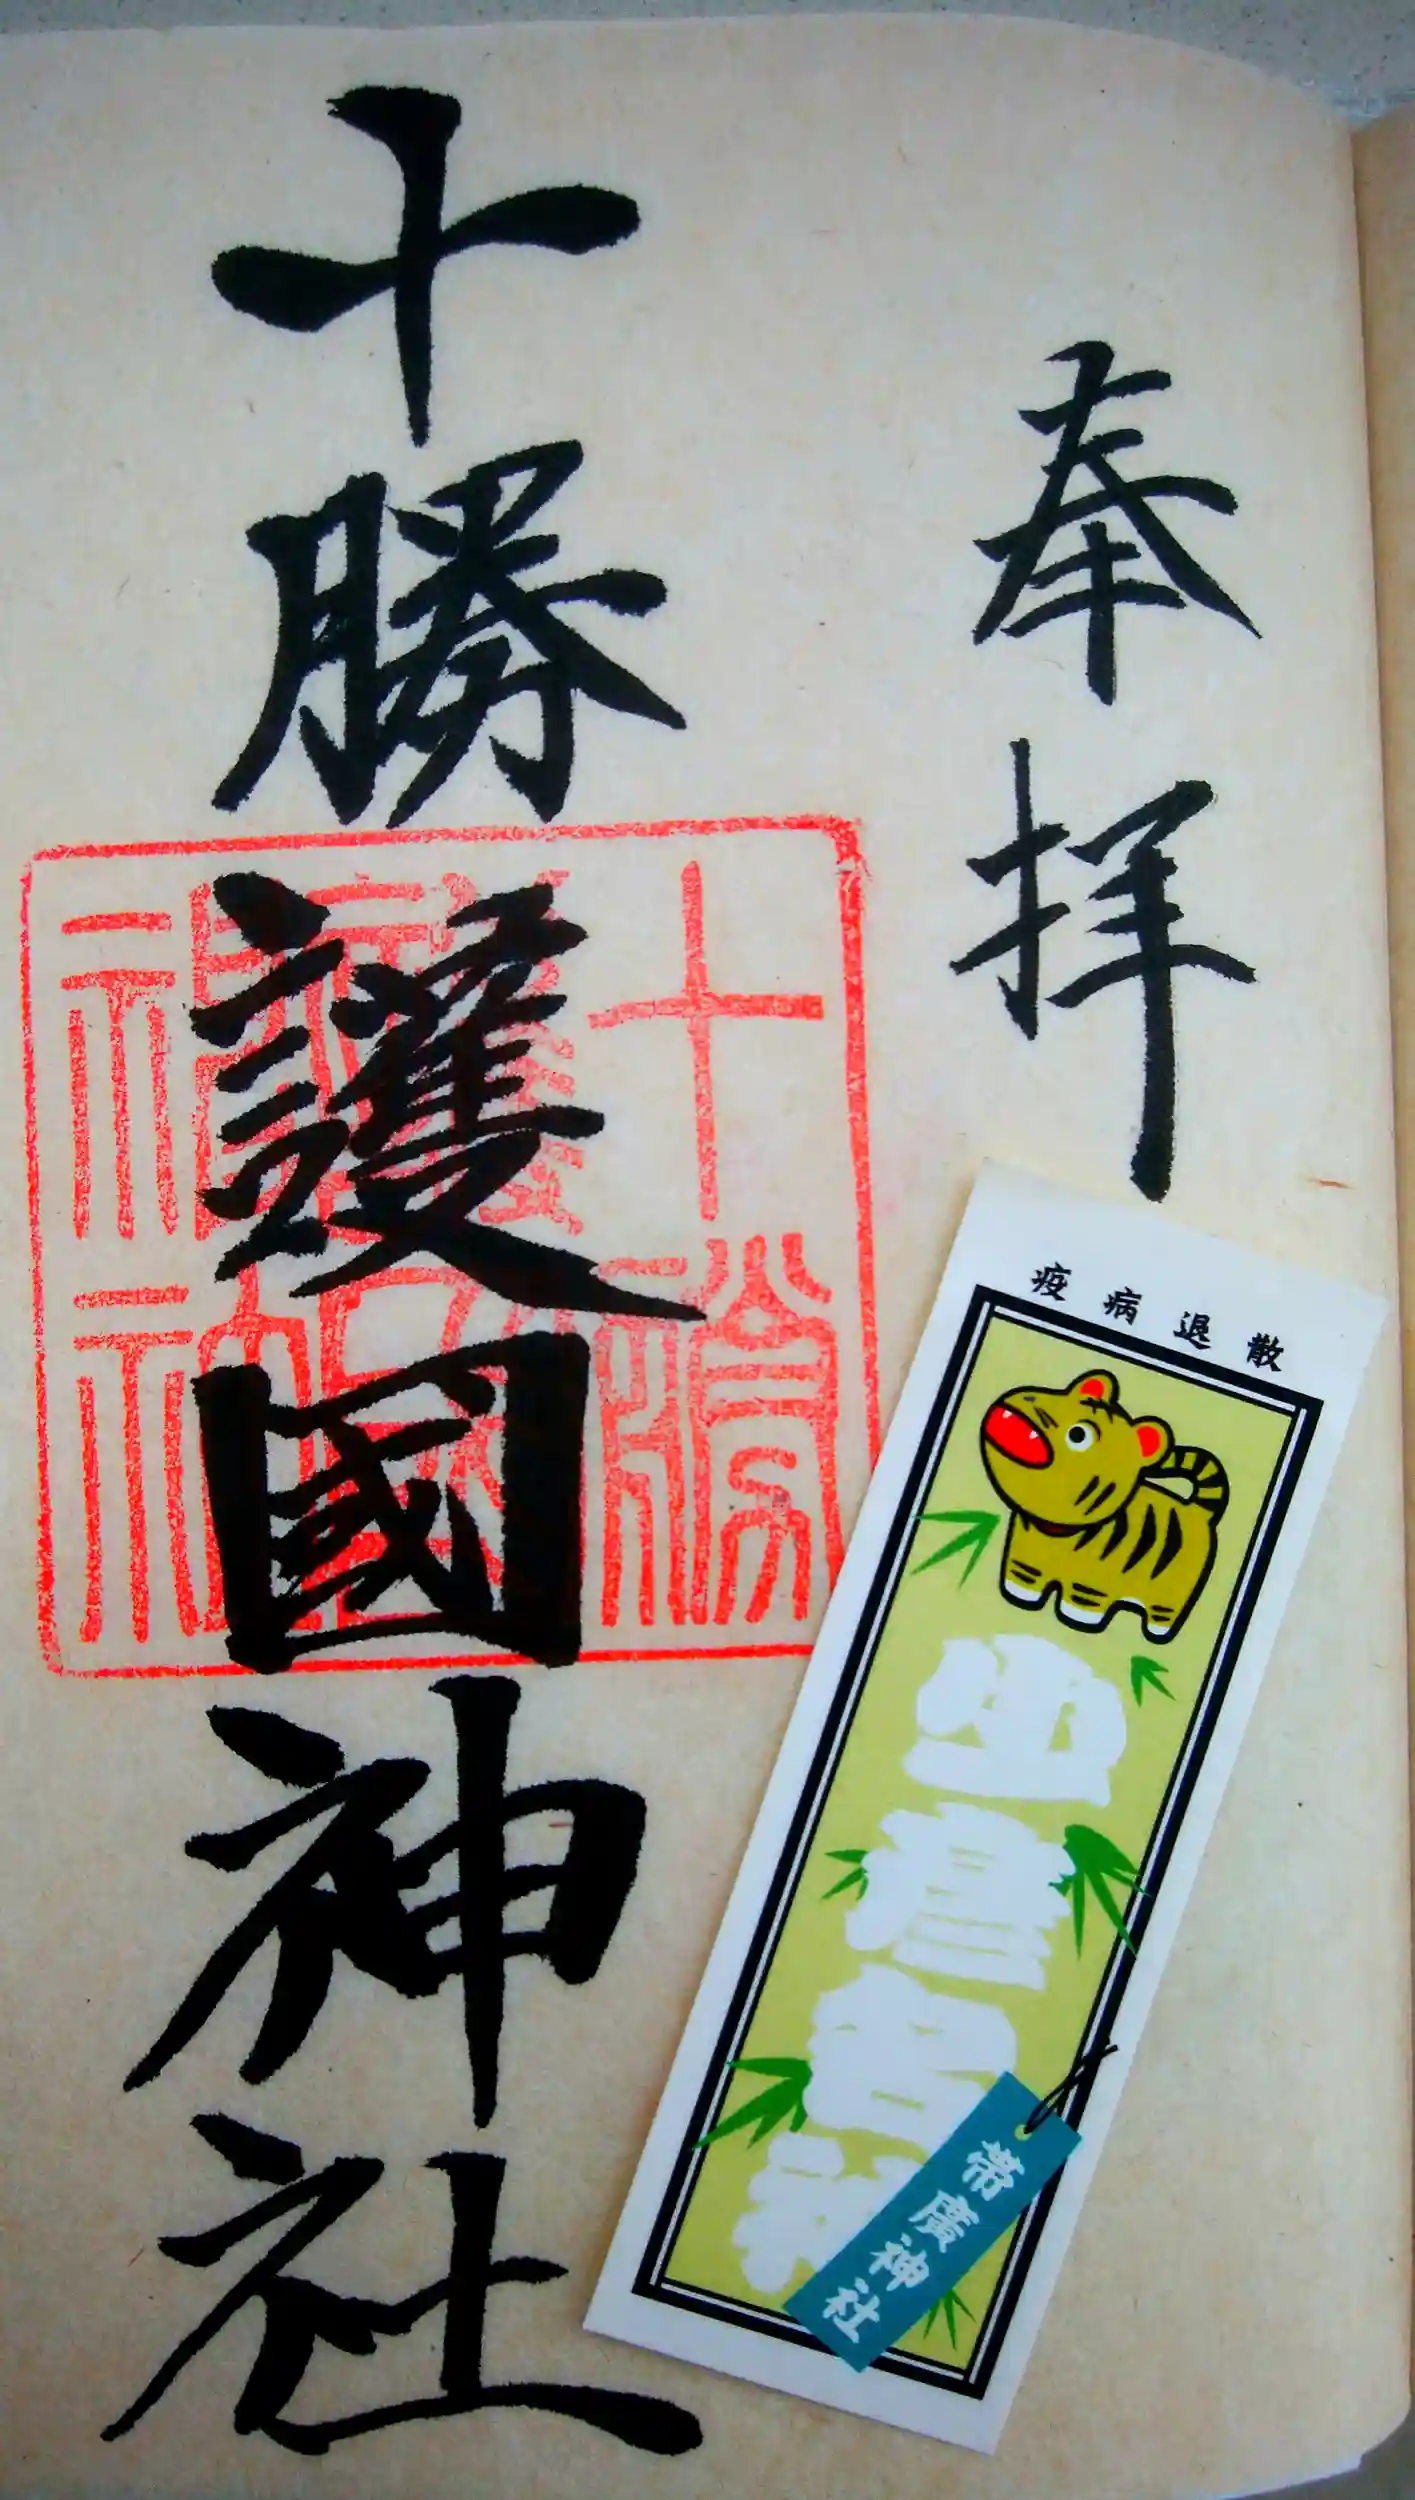 奉拝
十勝護國神社
十勝
護國
神社
疫病退散
帯廣神社